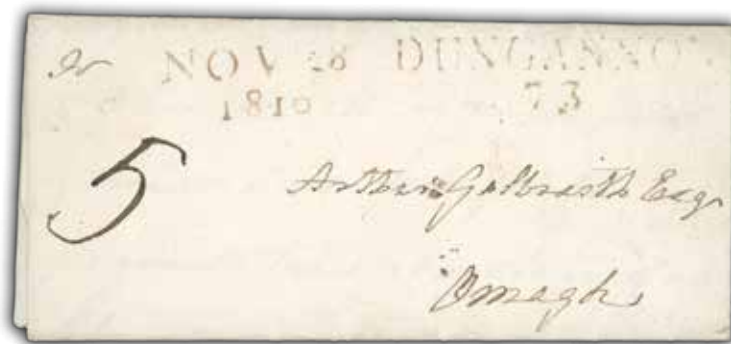 NOV 28 DUNGANNON
1810 73
5
Arthur Galbraith Esqr
Omagh